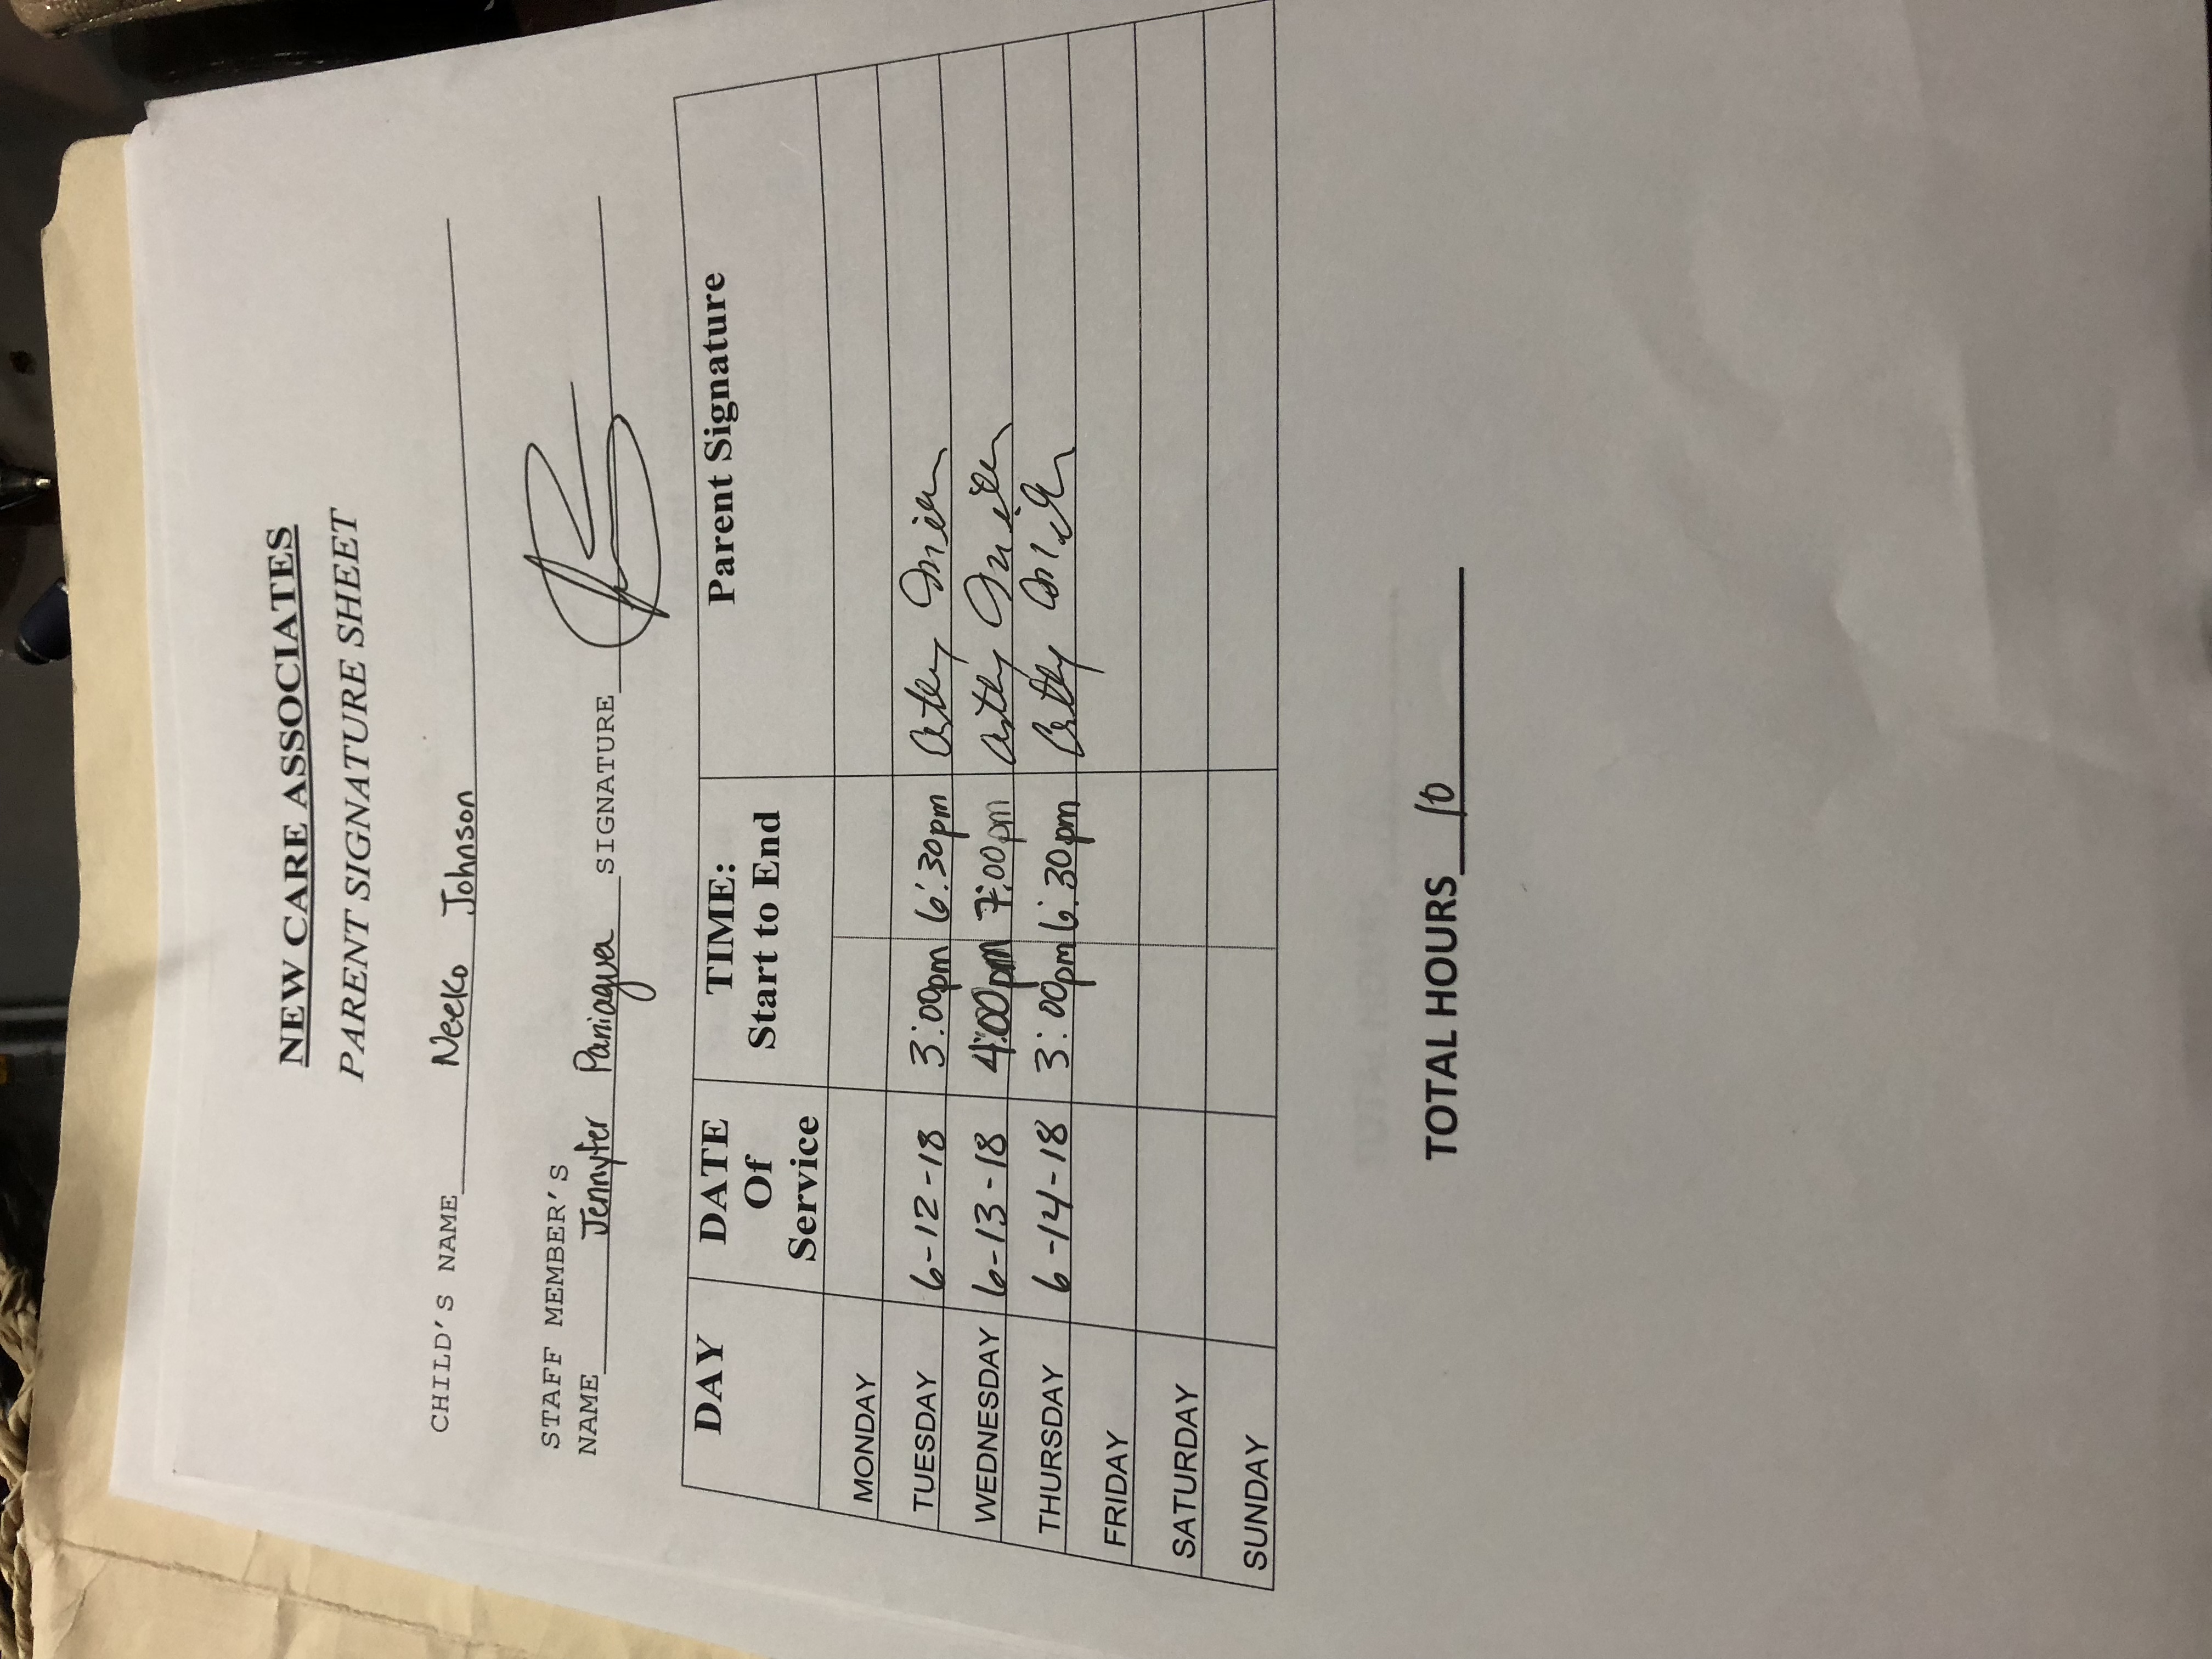 NEW CARE ASSOCIATES
PARENT SIGNATURE SHEET
CHILD'S NAME Neeko Johnson
STAFF MEMBER'S
NAME Jennyfer Paniagua SIGNATURE
DAY DATE Of Service TIME: Start to End Parent Signature
MONDAY
TUESDAY 6-12-18 3:00pm 6:30pm
WEDNESDAY 6-13-18 4:00pm 7:00pm
THURSDAY 6-14-18 3:00pm 6:30pm
FRIDAY
SATURDAY
SUNDAY
TOTAL HOURS 10